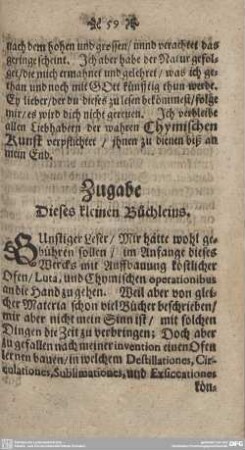 59
nach dem hohen und grossen/ unnd verachtet das
geringe scheint. Ich aber habe der Natur gefol-
get/ die mich ermahnet und gelehret/ was ich ge-
than und noch mit GOtt künfftig thun werde.
Ey lieber/ der du dieses zu lesen bekömmest/ folge
mir/ es wird dich nicht gereuen. Ich verbleibe
allen Liebhabern der wahren Chymischen
Kunst verpflichtet/ ihnen zu dienen biß an
mein End.
Zugabe
Dieses kleinen Büchleins.
GUnstiger Leser/ Mir hätte wohl ge-
bühren sollen/ im Anfange dieses
Wercks mit Auffbauung köstlicher
Ofen/ Luta, und Chymischen operationibus
an die Hand zu gehen. Weil aber von glei-
cher Materia schon viel Bücher beschrieben/
mir aber nicht mein Sinn ist/ mit solchen
Dingen die Zeit zu verbringen; Doch aber
zu gefallen nach meiner invention einen Ofen
lernen bauen/ in welchem Destillationes, Cir-
culationes, Sublimationes, und Exsiccationes
kön-